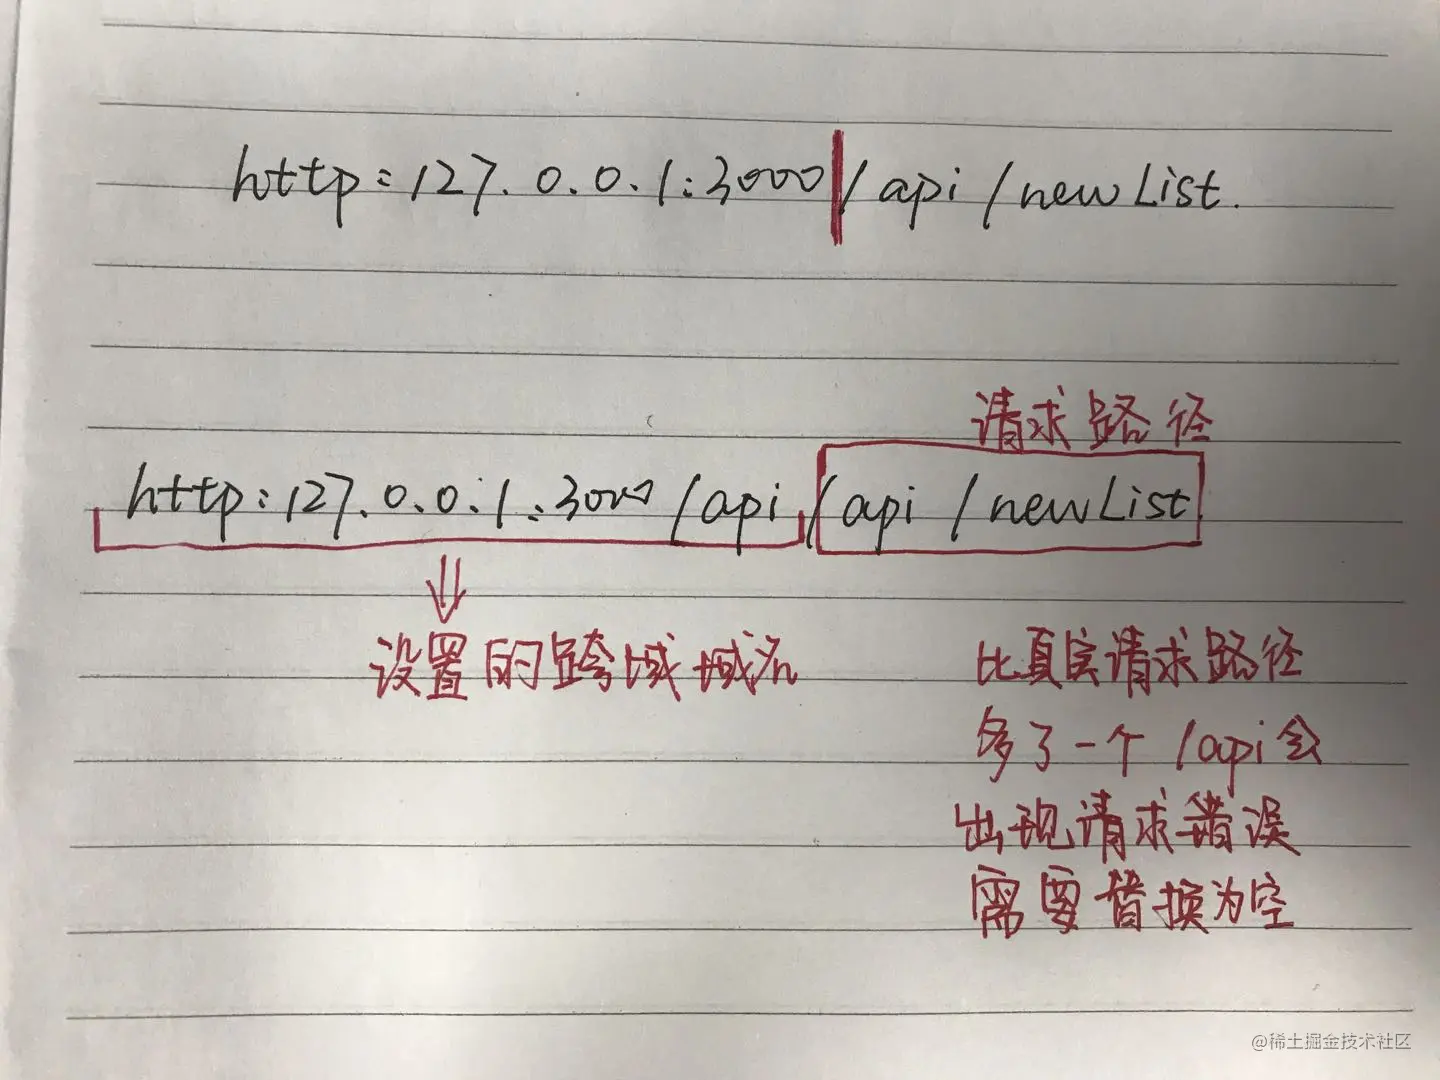 http:127.0.0.1:3000/api/newList.
请求路径
http:127.0.0.1:3000/api/api/newList
设置的跨域域名
比真实请求路径
多了一个/api会
出现请求错误
需要替换为空
@稀土掘金技术社区